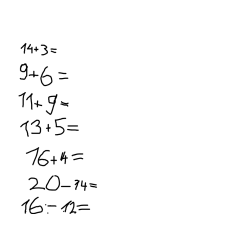 14+3=
9+6=
11+9=
13+5=
16+4=
20-14=
16:-12=